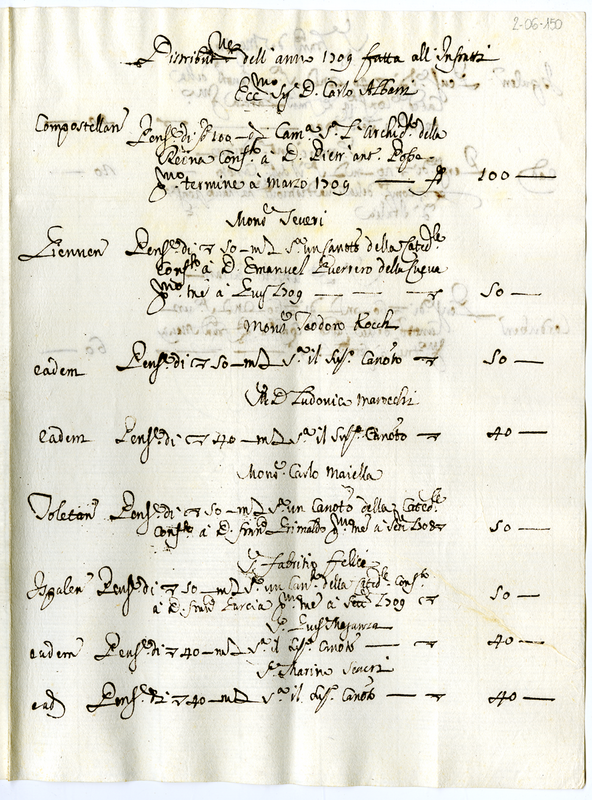 2-06-150
Distribut.ne dell'anno 1709 fatta all'Infratti
Ecc.mo Sig. D. Carlo Albani
Compostellan Pens.e di 100 Cam.a s.a l'Archid.to della
Reina Cons.to à D. Pietr'ant.
p.mo termine à marzo 1709 — 100 —
Mons. Severi
Giennen Pens.e di 50 — m.ta s.a un Canoto della Cated.le
Cons.to à D. Emanuel Guerrero della Cueva
p.mo tne à 1709 — 50 —
Mons. Teodoro Rocchi
eadem Pens.e di 50 — m.ta s.a il sud.o Canoto — 50 —
D. Ludovica Marocchi
eadem Pens.e di 40 — m.ta s.a il sud.o Canoto — 40 —
Mons. Carlo Maiella
Toletan Pens.e di 50 — m.ta s.a un Canoto della Cated.le
Cons.to à D. Fran.o Grimaldo p.mo tne à — 50 —
S. Fabritio Felice
Ispalen Pens.e di 50 — m.ta s.a un Can.to della Cated.le Cons.to
à D. Fran.o Garcia p.mo tne à 1709 — 50 —
S.
eadem Pens.e di 40 — m.ta s.a il sud.o Canoto — 40 —
S. Marino Severi
ead Pens.e di 40 — m.ta s.a il sud.o Canoto — 40 —